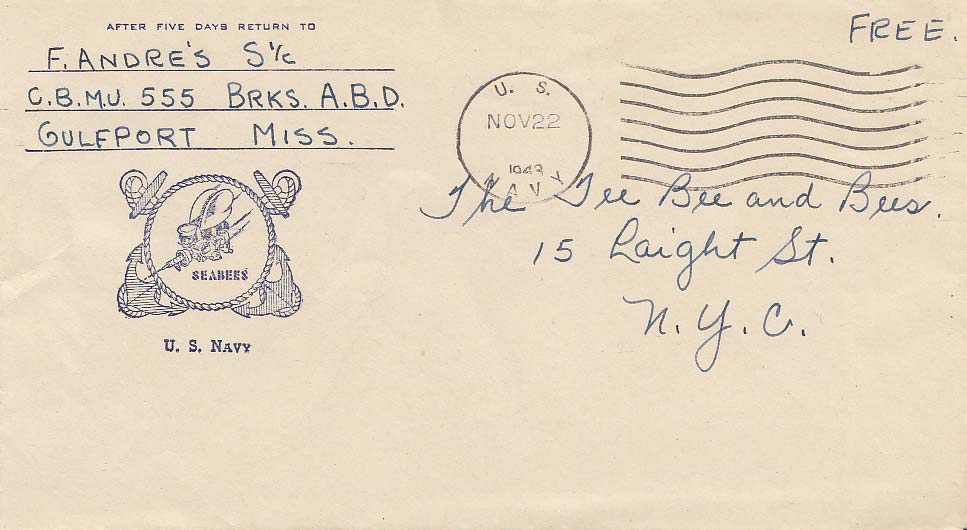 AFTER FIVE DAYS RETURN TO
F. ANDRE'S S 1/c
C.B.M.U. 555 BRKS. A.B.D.
GULFPORT MISS.
FREE.
U. S.
NOV 22
1943
NAVY
SEABEES
U. S. NAVY
The Tee Bee and Bees.
15 Laight St.
N. Y. C.